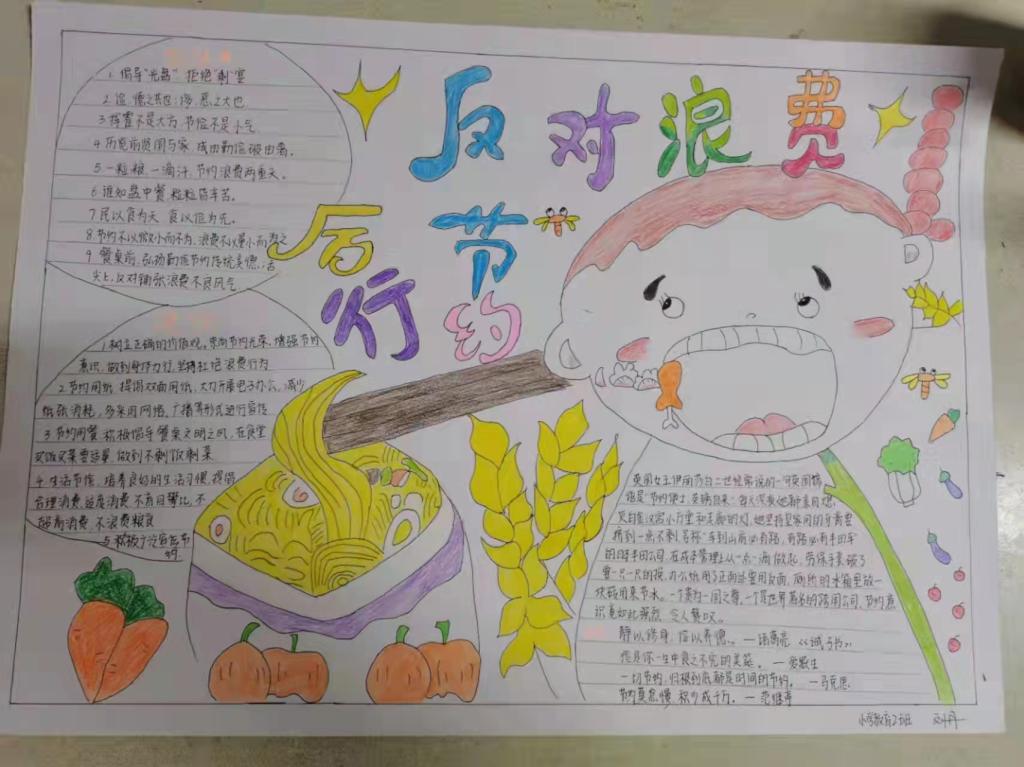 反对浪费
厉行节约
1.倡导"光盘" 拒绝"剩"宴
2.俭,德之共也;侈,恶之大也
3.挥霍不是大方,节俭不是小气
4.历览前贤国与家,成由勤俭破由奢。
5.一粒粮,一滴汗,节约浪费两重天。
6.谁知盘中餐,粒粒皆辛苦。
7.民以食为天 食以俭为先。
8.节约不以微小而不为,浪费不以量小而为之
9.餐桌前,弘扬勤俭节约传统美德,舌
尖上,反对铺张浪费不良风气
1.树立正确的价值观。崇尚节约光荣,增强节约
意识,做到身体力行,坚持杜绝浪费行为
2.节约用纸 提倡双面用纸,大力开展电子办公,减少
纸张消耗,多采用网络,广播等形式进行宣传
3.节约用餐 积极倡导餐桌文明之风,在食堂
买饭买菜要适量 做到不剩饭剩菜
4.生活节俭,培养良好的生活习惯,提倡
合理消费,适度消费 不盲目攀比,不
超高消费 不浪费粮食
5.积极
英国女王伊丽莎白二世经常说的一句英国谚
语是"节约便士,英镑自来",每天深夜她都亲自熄
灭白金汉宫小厅堂和走廊的灯,她坚持皇家用的牙膏要
挤到一点不剩。号称"车到山前必有路,有路必有丰田车"
的日本丰田公司,在成本管理上从一点一滴做起,劳保手套破了
要一只一只的换,办公纸用了正面还要用反面,厕所的水箱里放一
块砖用来节水。一个贵为一国之尊,一个是世界著名的跨国公司,节约意
识竟如此强烈 令人赞叹。
静以修身,俭以养德。—诸葛亮《诫子书》
俭是你一生中食之不完的美筵。—爱默生
一切节约,归根到底都是时间的节约。—马克思
节约莫怠慢,积少成千万。—
小学教育2班 刘丹